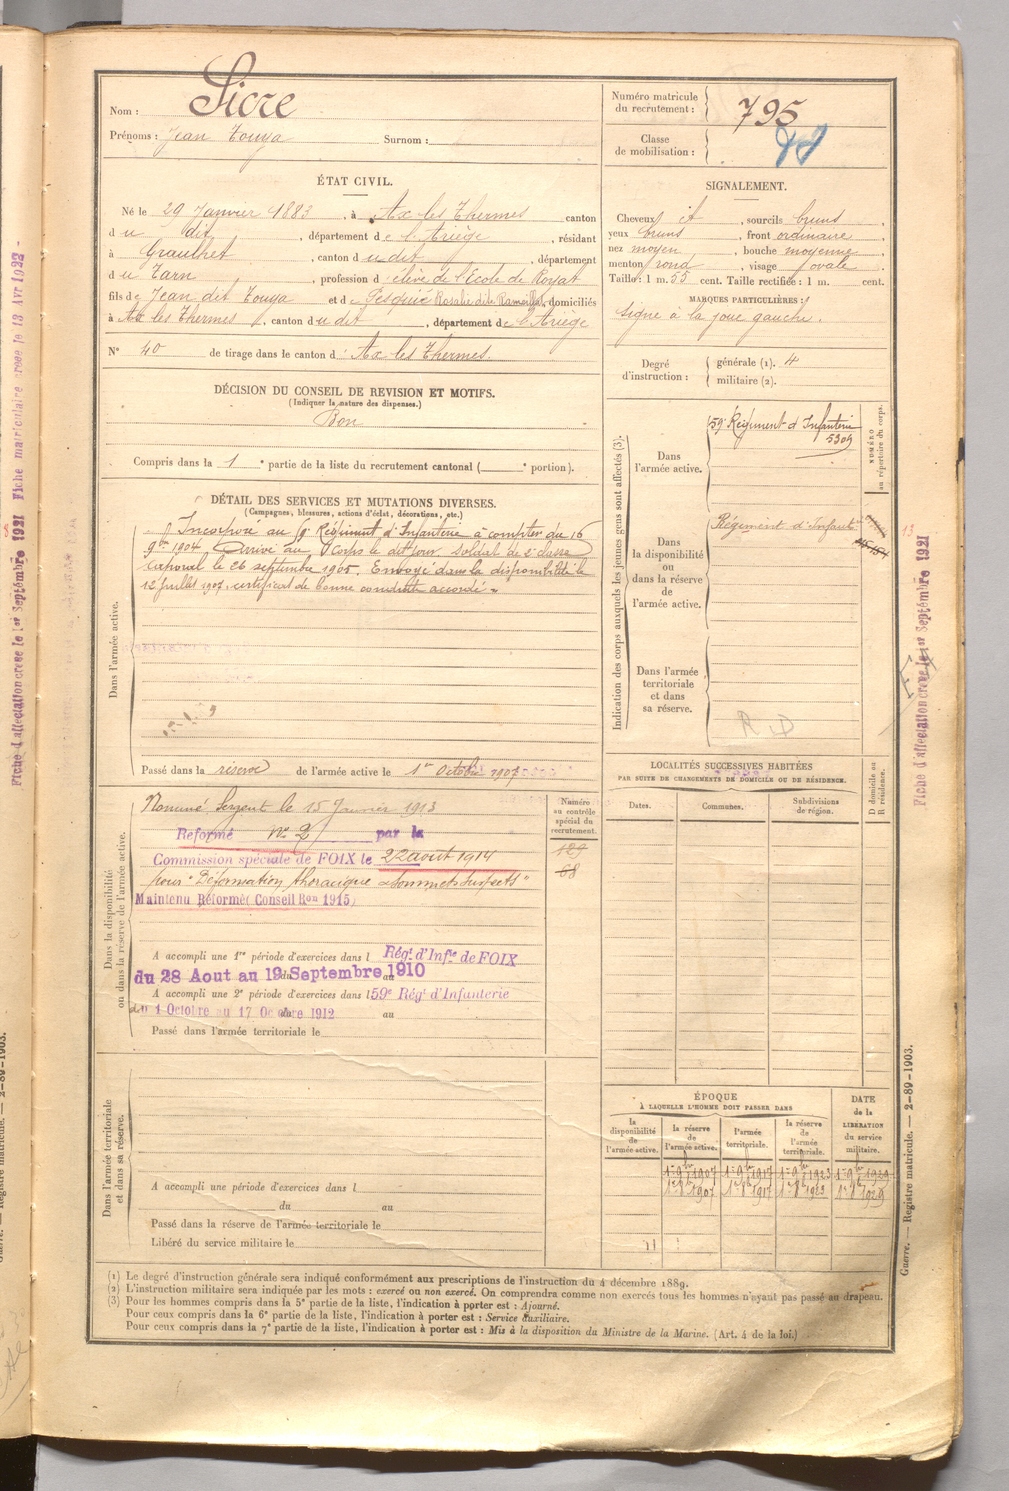 Nom : Sicre
Prénoms : Jean Touya Surnom :
ÉTAT CIVIL.
Né le 29 Janvier 1883, à Ax les Thermes canton
du dit, département de l'Ariège, résidant
à Graulhet, canton du dit, département
du Tarn, profession d'élève de l'Ecole de Royat
fils de Jean dit Touya et de Pesquié Rosalie dite Rameillat, domiciliés
à Ax les Thermes, canton du dit, département de l'Ariège
N° 40 de tirage dans le canton d' Ax les Thermes.
DÉCISION DU CONSEIL DE REVISION ET MOTIFS.
(Indiquer la nature des dispenses.)
Bon
Compris dans la 1e partie de la liste du recrutement cantonal ( e portion).
DÉTAIL DES SERVICES ET MUTATIONS DIVERSES.
(Campagnes, blessures, actions d'éclat, décorations, etc.)
Dans l'armée active.
Incorporé au 59e Régiment d'Infanterie à compter du 16
9bre 1904. Arrivé au Corps le dit jour. Soldat de 2e classe
Caporal le 26 septembre 1905. Envoyé dans la disponibilité le
12 juillet 1907. certificat de bonne conduite accordé.
Passé dans la réserve de l'armée active le 1er Octobre 1907
Dans la disponibilité
ou dans la réserve de l'armée active.
Numéro
au contrôle
spécial du
recrutement.
129
68
Nommé Sergent le 15 Janvier 1913
Reformé n° 2 par la
Commission spéciale de FOIX le 22 août 1914
pour "Déformation thoracique sommets suspects"
Maintenu Réformé (Conseil Ron 1915)
A accompli une 1re période d'exercices dans l Régt d'Infie de FOIX
du 28 Aout au 19 Septembre 1910
A accompli une 2e période d'exercices dans l 59e Régt d'Infanterie
du 1 Octobre au 17 Octobre 1912 au
Passé dans l'armée territoriale le
Dans l'armée territoriale
et dans sa réserve.
A accompli une période d'exercices dans l
du au
Passé dans la réserve de l'armée territoriale le
Libéré du service militaire le
Numéro matricule
du recrutement : 795
Classe
de mobilisation :
SIGNALEMENT.
Cheveux et, sourcils bruns
yeux bruns, front ordinaire,
nez moyen, bouche moyenne,
menton rond, visage ovale.
Taille : 1 m. 55 cent. Taille rectifiée : 1 m. cent.
MARQUES PARTICULIÈRES :
signe à la joue gauche.
Degré
d'instruction :
générale (1). 4
militaire (2).
Indication des corps auxquels les jeunes gens sont affectés (3).
NUMÉRO
au répertoire du corps.
Dans
l'armée active.
59e Régiment d'Infanterie
5309
Dans
la disponibilité
ou
dans la réserve
de
l'armée active.
Régiment d'Infanterie
Dans l'armée
territoriale
et dans
sa réserve.
R D
LOCALITÉS SUCCESSIVES HABITÉES
PAR SUITE DE CHANGEMENTS DE DOMICILE OU DE RÉSIDENCE.
Dates. Communes. Subdivisions
de région.
D domicile ou
R résidence.
ÉPOQUE
À LAQUELLE L'HOMME DOIT PASSER DANS
DATE
de la
LIBÉRATION
du service
militaire.
la
disponibilité
de
l'armée active.
la réserve
de
l'armée active.
l'armée
territoriale.
la réserve
de
l'armée
territoriale.
1er 9bre 1907 1er 9bre 1917 1er 9bre 1923 1er 9bre 1929
1er 8bre 1907 1er 8bre 1917 1er 8bre 1923 1er 8bre 1929
(1) Le degré d'instruction générale sera indiqué conformément aux prescriptions de l'instruction du 4 décembre 1889.
(2) L'instruction militaire sera indiquée par les mots : exercé ou non exercé. On comprendra comme non exercés tous les hommes n'ayant pas passé au drapeau.
(3) Pour les hommes compris dans la 5e partie de la liste, l'indication à porter est : Ajourné.
Pour ceux compris dans la 6e partie de la liste, l'indication à porter est : Service auxiliaire.
Pour ceux compris dans la 7e partie de la liste, l'indication à porter est : Mis à la disposition du Ministre de la Marine. (Art. 4 de la loi.)
Fiche d'affectation créée le 1er Septembre 1921
Fiche matriculaire créée le 13 Avr 1922
Fiche d'affectation créée le 1er Septembre 1921
Guerre. — Registre matricule. — 2-89-1903.